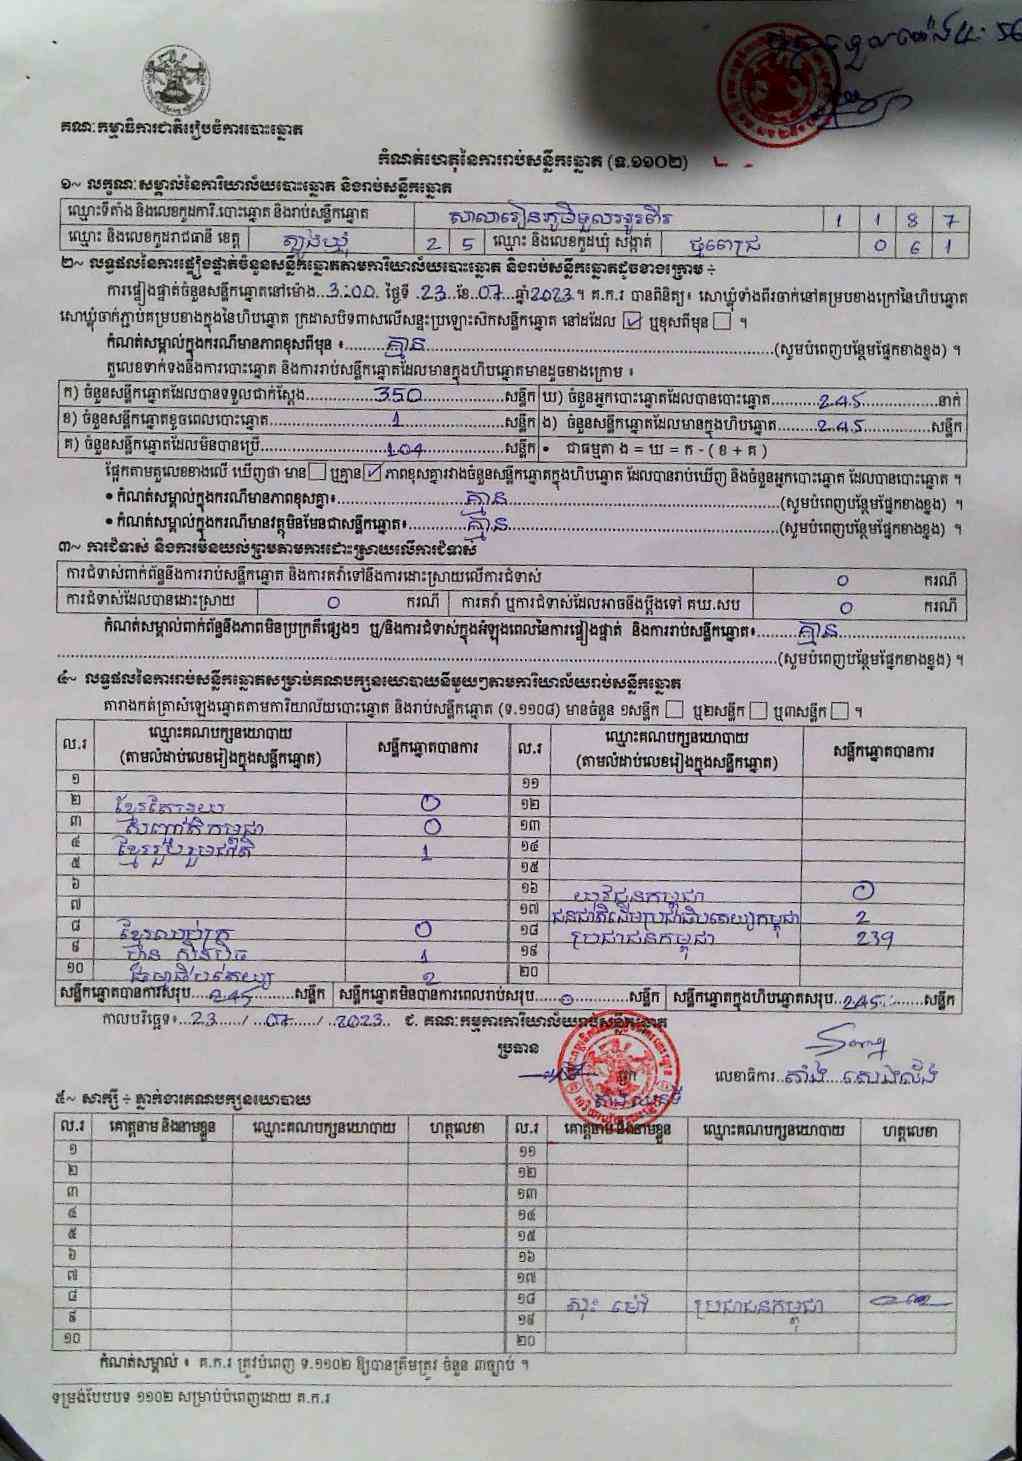 គណៈកម្មាធិការជាតិរៀបចំការបោះឆ្នោត
កំណត់ហេតុនៃការរាប់សន្លឹកឆ្នោត (ទ.១១០២)
១~ លក្ខណៈសម្គាល់នៃការិយាល័យបោះឆ្នោត និងរាប់សន្លឹកឆ្នោត
ឈ្មោះទីតាំង និងលេខកូដការិ.បោះឆ្នោត និងរាប់សន្លឹកឆ្នោត សាលារៀនភូមិទួល 1 1 8 7
ឈ្មោះ និងលេខកូដរាជធានី ខេត្ត ត្បូងឃ្មុំ 2 5 ឈ្មោះ និងលេខកូដឃុំ សង្កាត់ ថ្មពេជ្រ 0 6 1
២~ លទ្ធផលនៃការផ្ទៀងផ្ទាត់ចំនួនសន្លឹកឆ្នោតតាមការិយាល័យបោះឆ្នោត និងរាប់សន្លឹកឆ្នោតដូចខាងក្រោម ÷
ការផ្ទៀងផ្ទាត់ចំនួនសន្លឹកឆ្នោតនៅម៉ោង...3:00. ថ្ងៃទី .23..ខែ.07...ឆ្នាំ2023.។ គ.ក.រ បានពិនិត្យ៖ សោឃ្លុំទាំងពីរចាក់នៅគម្របខាងក្រៅនៃហិបឆ្នោត
សោឃ្លុំចាក់ភ្ជាប់គម្របខាងក្នុងនៃហិបឆ្នោត ក្រដាសបិទពាសលើសន្ទះប្រឡោះសិកសន្លឹកឆ្នោត នៅដដែល ☑ ឬខុសពីមុន ☐ ។
កំណត់សម្គាល់ក្នុងករណីមានភាពខុសពីមុន ៖.......គ្មាន.......(សូមបំពេញបន្ថែមផ្នែកខាងខ្នង) ។
តួលេខទាក់ទងនឹងការបោះឆ្នោត និងការរាប់សន្លឹកឆ្នោតដែលមានក្នុងហិបឆ្នោតមានដូចខាងក្រោម ៖
ក) ចំនួនសន្លឹកឆ្នោតដែលបានទទួលជាក់ស្តែង.......350.......សន្លឹក ឃ) ចំនួនអ្នកបោះឆ្នោតដែលបានបោះឆ្នោត.......245.......នាក់
ខ) ចំនួនសន្លឹកឆ្នោតខូចពេលបោះឆ្នោត.......1.......សន្លឹក ង) ចំនួនសន្លឹកឆ្នោតដែលមានក្នុងហិបឆ្នោត.......245.......សន្លឹក
គ) ចំនួនសន្លឹកឆ្នោតដែលមិនបានប្រើ.......104.......សន្លឹក • ជាធម្មតា ង = ឃ = ក - ( ខ + គ )
ផ្អែកតាមតួលេខខាងលើ ឃើញថា មាន ☐ ឬគ្មាន ☑ ភាពខុសគ្នារវាងចំនួនសន្លឹកឆ្នោតក្នុងហិបឆ្នោត ដែលបានរាប់ឃើញ និងចំនួនអ្នកបោះឆ្នោត ដែលបានបោះឆ្នោត ។
• កំណត់សម្គាល់ក្នុងករណីមានភាពខុសគ្នា៖.......គ្មាន.......(សូមបំពេញបន្ថែមផ្នែកខាងខ្នង) ។
• កំណត់សម្គាល់ក្នុងករណីមានវត្ថុមិនមែនជាសន្លឹកឆ្នោត៖.......គ្មាន.......(សូមបំពេញបន្ថែមផ្នែកខាងខ្នង) ។
៣~ ការជំទាស់ និងការមិនយល់ព្រមតាមការដោះស្រាយលើការជំទាស់
ការជំទាស់ពាក់ព័ន្ធនឹងការរាប់សន្លឹកឆ្នោត និងការតវ៉ាទៅនឹងការដោះស្រាយលើការជំទាស់ 0 ករណី
ការជំទាស់ដែលបានដោះស្រាយ 0 ករណី ការតវ៉ា ឬការជំទាស់ដែលអាចនឹងប្តឹងទៅ គឃ.សប 0 ករណី
កំណត់សម្គាល់ពាក់ព័ន្ធនឹងភាពមិនប្រក្រតីផ្សេងៗ ឬ/និងការជំទាស់ក្នុងអំឡុងពេលនៃការផ្ទៀងផ្ទាត់ និងការរាប់សន្លឹកឆ្នោត៖.......គ្មាន.......
.......(សូមបំពេញបន្ថែមផ្នែកខាងខ្នង) ។
៤~ លទ្ធផលនៃការរាប់សន្លឹកឆ្នោតសម្រាប់គណបក្សនយោបាយនីមួយៗតាមការិយាល័យរាប់សន្លឹកឆ្នោត
តារាងកត់ត្រាសំឡេងឆ្នោតតាមការិយាល័យបោះឆ្នោត និងរាប់សន្លឹកឆ្នោត (ទ.១១០៨) មានចំនួន ១សន្លឹក ☐ ឬ២សន្លឹក ☐ ឬ៣សន្លឹក ☐ ។
ល.រ ឈ្មោះគណបក្សនយោបាយ (តាមលំដាប់លេខរៀងក្នុងសន្លឹកឆ្នោត) សន្លឹកឆ្នោតបានការ ល.រ ឈ្មោះគណបក្សនយោបាយ (តាមលំដាប់លេខរៀងក្នុងសន្លឹកឆ្នោត) សន្លឹកឆ្នោតបានការ
១ ១១
២ 0 ១២
៣ 0 ១៣
៤ ខ្មែររួបរួមជាតិ 1 ១៤
៥ ១៥
៦ ១៦ យុវជនកម្ពុជា 0
៧ ១៧ ជនជាតិដើមប្រជាធិបតេយ្យកម្ពុជា 2
៨ ខ្មែរឈប់ក្រ 0 ១៨ ប្រជាជនកម្ពុជា 239
៩ 1 ១៩
១០ 2 ២០
សន្លឹកឆ្នោតបានការសរុប.....245.......សន្លឹក សន្លឹកឆ្នោតមិនបានការពេលរាប់សរុប.....0.......សន្លឹក សន្លឹកឆ្នោតក្នុងហិបឆ្នោតសរុប..245.......សន្លឹក
កាលបរិច្ឆេទ៖..23...../...07....../..2023.. ៩. គណៈកម្មការការិយាល័យរាប់សន្លឹកឆ្នោត
ប្រធាន
លេខាធិការ..តាំង
៥~ សាក្សី ÷ ភ្នាក់ងារគណបក្សនយោបាយ
ល.រ គោត្តនាម និងនាមខ្លួន ឈ្មោះគណបក្សនយោបាយ ហត្ថលេខា ល.រ គោត្តនាម និងនាមខ្លួន ឈ្មោះគណបក្សនយោបាយ ហត្ថលេខា
១ ១១
២ ១២
៣ ១៣
៤ ១៤
៥ ១៥
៦ ១៦
៧ ១៧
៨ ១៨ ប្រជាជនកម្ពុជា
៩ ១៩
១០ ២០
កំណត់សម្គាល់ ៖ គ.ក.រ ត្រូវបំពេញ ទ.១១០២ ឱ្យបានត្រឹមត្រូវ ចំនួន ៣ច្បាប់ ។
ទម្រង់បែបបទ ១១០២ សម្រាប់បំពេញដោយ គ.ក.រ